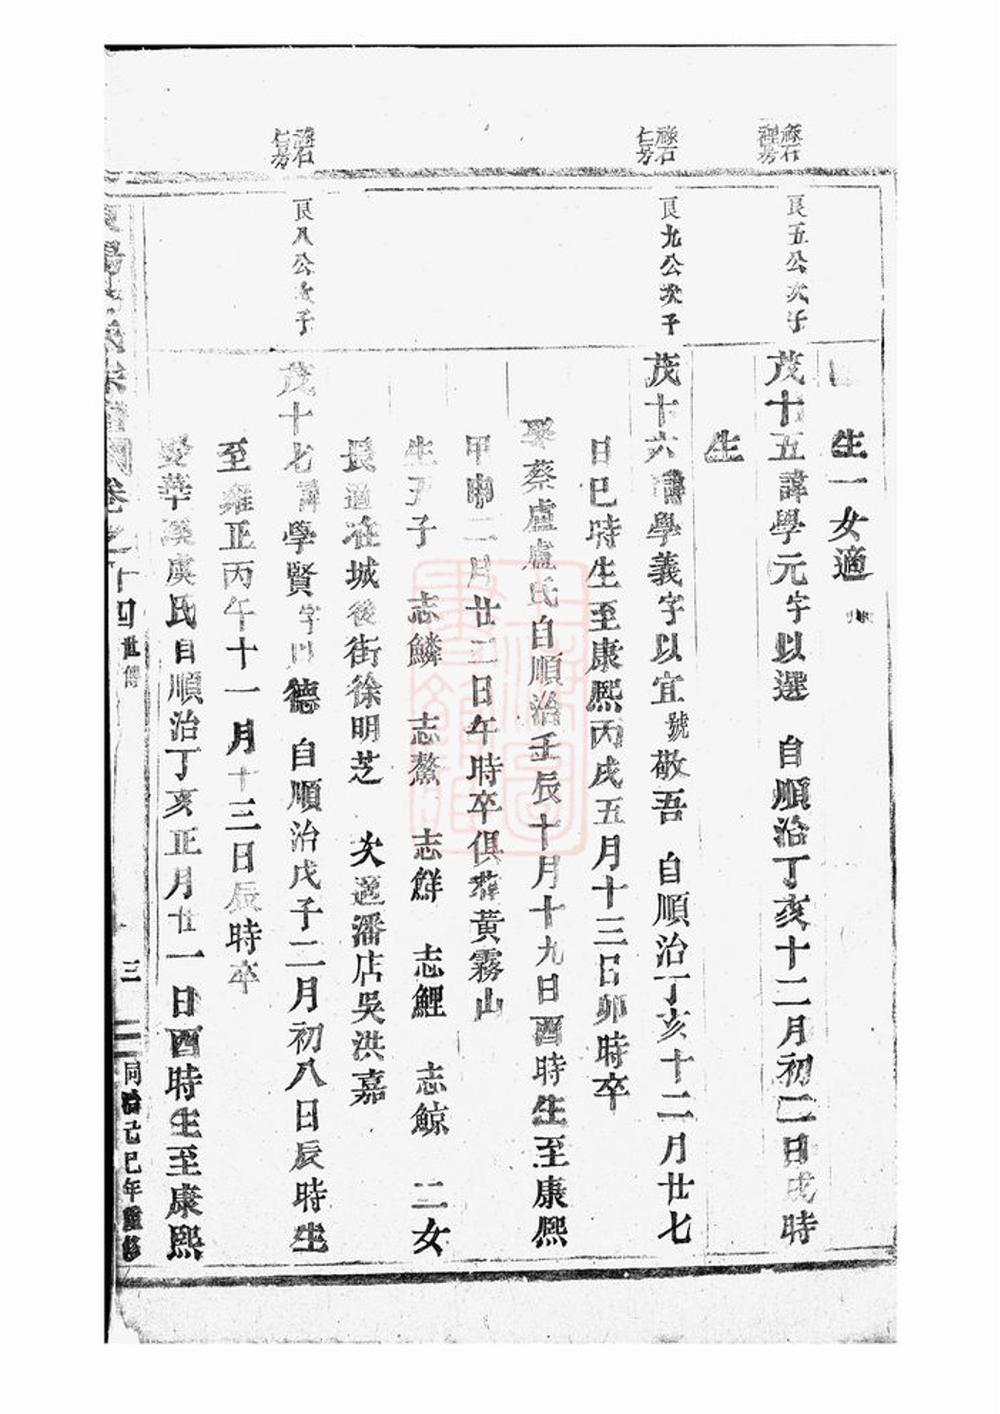 生一女適
良五公次子
茂十五諱學元字以選 自順治丁亥十二月初二日戌時
生
仁房
良九公次子
茂十六諱學義字以宜號敬吾 自順治丁亥十二月廿七
日巳時生至康熙丙戌五月十三日卯時卒
娶蔡盧盧氏自順治壬辰十月十九日酉時生至康熙
甲申二月廿三日午時卒俱葬黃霧山
生五子 志鱗 志鰲 志鮮 志鯉 志鯨 二女
長適在城後街徐明芝 次適潘店吳洪嘉
仁房
良八公次子
茂十七諱學賢字以德 自順治戊子二月初八日辰時生
至雍正丙午十一月十三日辰時卒
娶華溪虞氏自順治丁亥正月廿一日酉時生至康熙
氏宗譜 卷之十四 世傳 三 同治己巳年重修